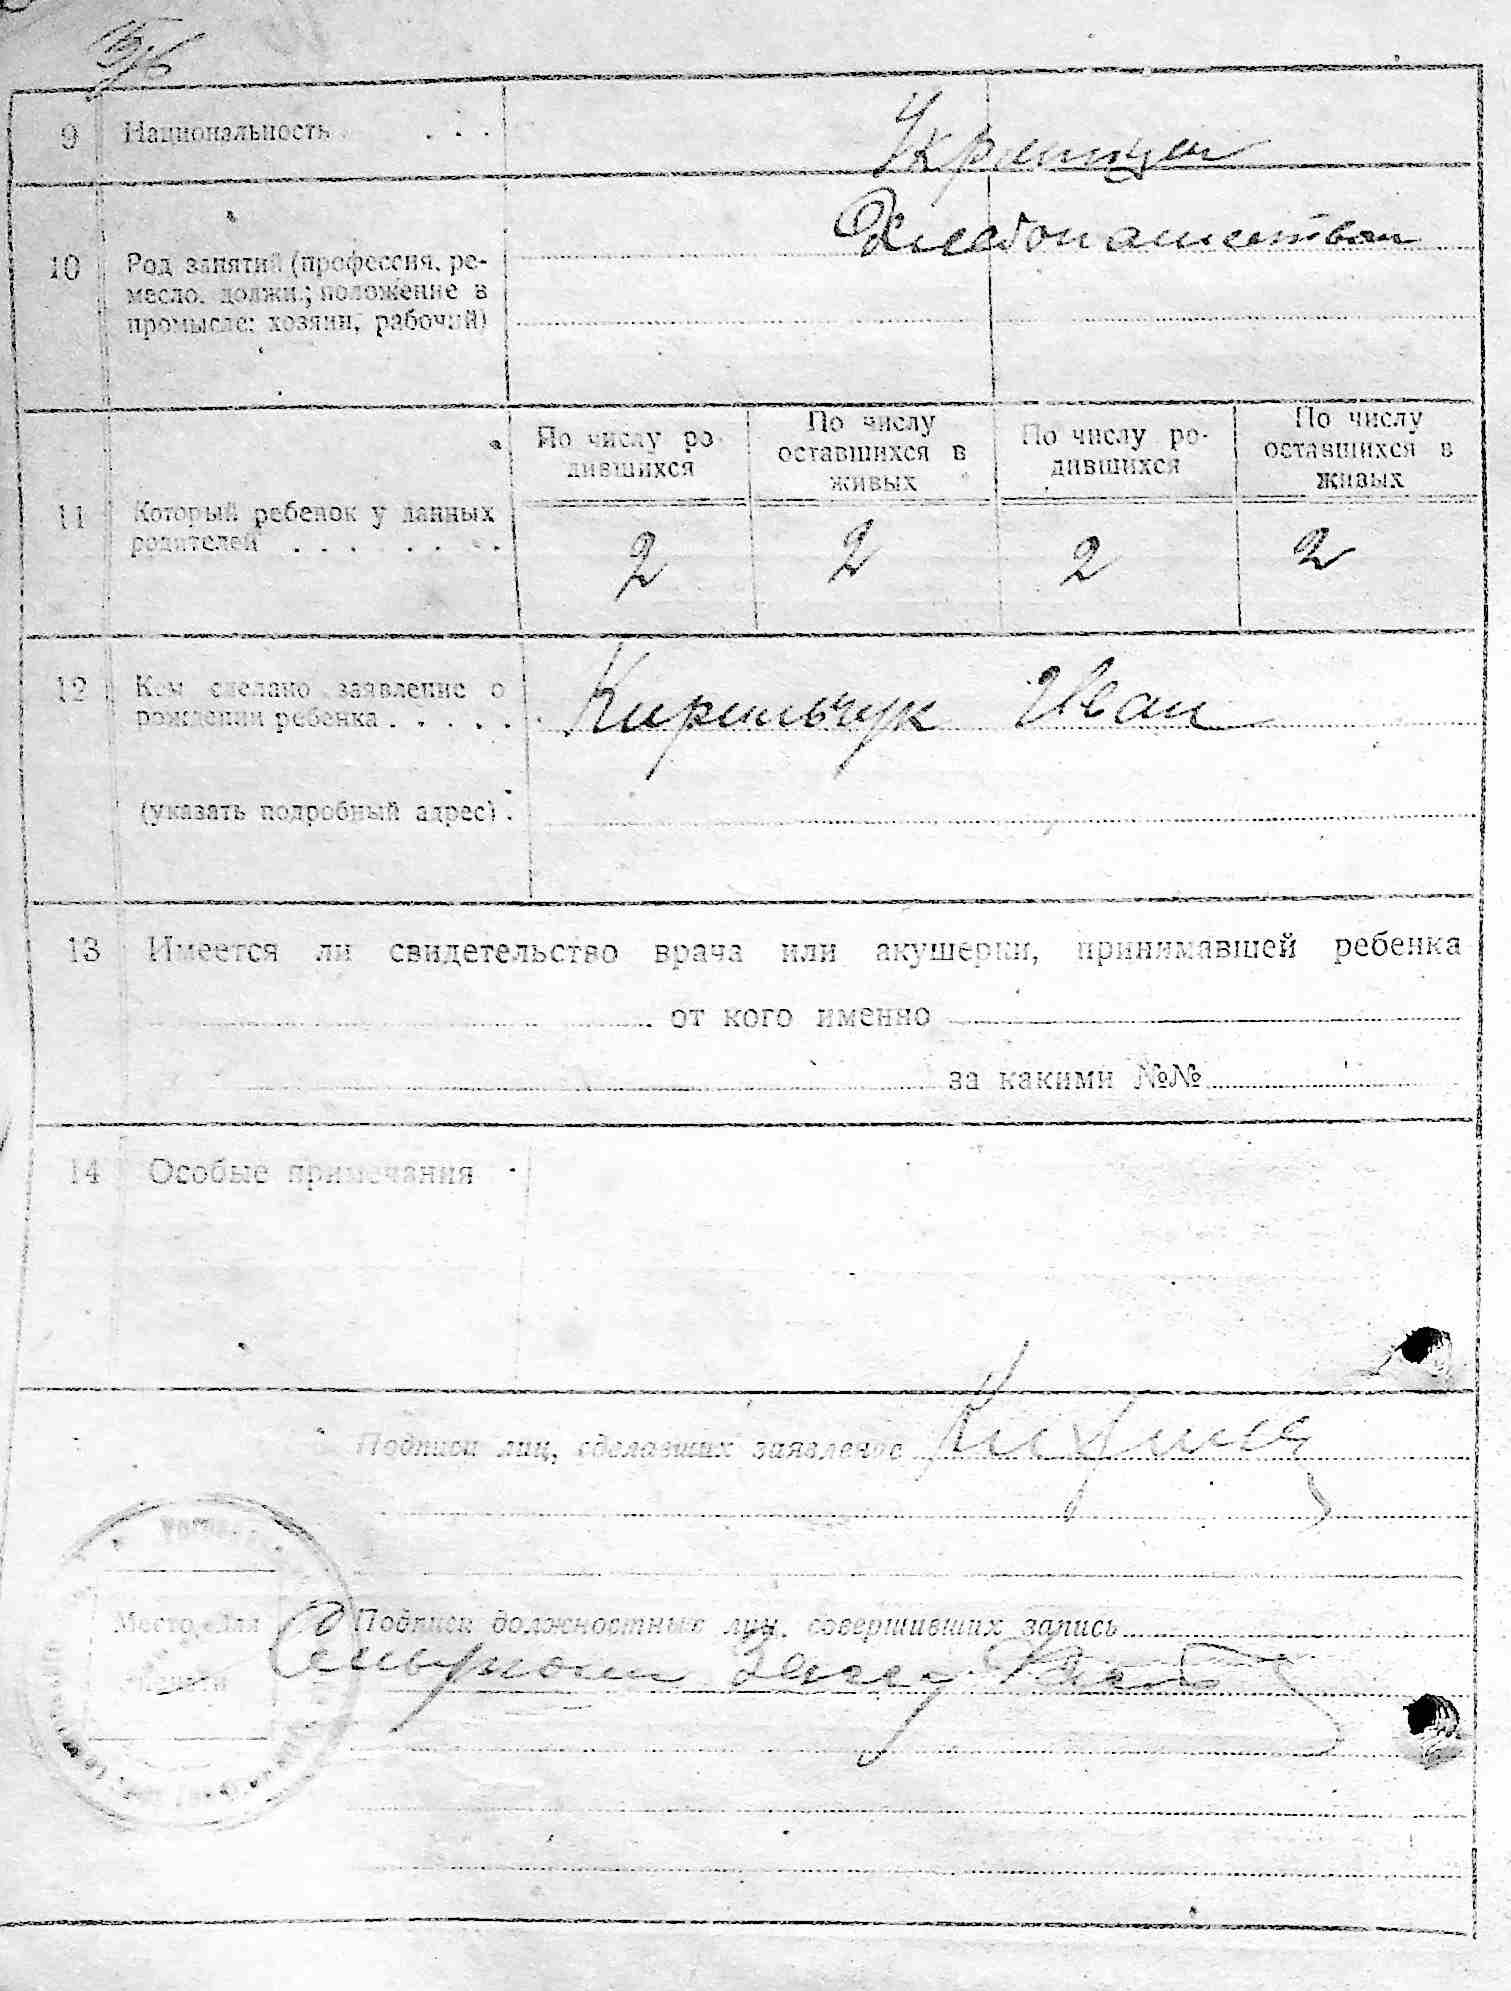 9 Национальность . . .
Украинцы
10 Род занятий (профессия, ре-
месло, должн.; положение в
промысле: хозяин, рабочий)
Хлебопашество
По числу ро-
дившихся
По числу
оставшихся в
живых
По числу ро-
дившихся
По числу
оставшихся в
живых
11 Который ребенок у данных
родителей . . . . . . .
2 2 2 2
12 Кем сделано заявление о
рождении ребенка . . . . .
Кирильчук Иван
(указать подробный адрес) .
13 Имеется ли свидетельство врача или акушерки, принимавшей ребенка
от кого именно
за какими №№
14 Особые примечания
Подписи лиц, сделавших заявление
Место для
печати
Подписи должностных лиц, совершивших запись